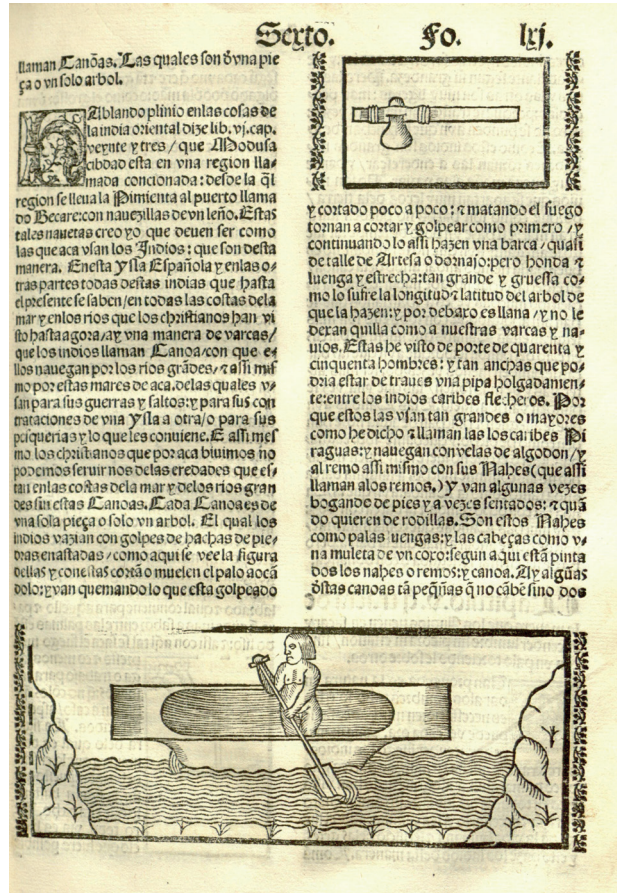 Sexto. Fo. lxj.
llaman Canoas. Las quales son d'vna pie
ça o vn solo arbol.
HAblando plinio enlas cosas de
la india oriental dize lib. vj. cap.
veynte y tres / que Modusa
cibdad esta en vna region lla-
mada concionada: desde la q̃l
region se lleua la Pimienta al puerto llama
do Becare: con nauezillas de vn leño. Estas
tales nauetas creo yo que deuen ser como
las que aca vsan los Indios: que son desta
manera. Enesta Ysla Española y enlas o-
tras partes todas destas indias que hasta
el presente se saben / en todas las costas dela
mar y enlos rios que los christianos han vi
sto hasta agora / ay vna manera de varcas /
que los indios llaman Canoa / con que e-
llos nauegan por los rios grãdes / ⁊ assi mis
mo por estas mares de aca. delas quales v-
san para sus guerras y saltos: y para sus con
trataciones de vna Ysla a otra / o para sus
pesquerias y lo que les conuiene. E assi mes
mo los christianos que por aca biuimos no
podemos seruir nos delas eredades que es-
tan enlas costas dela mar y delos rios gran
des sin estas Canoas. Cada Canoa es de
vna sola pieça o solo vn arbol. El qual los
indios vazian con golpes de hachas de pie-
dras enastadas / como aqui se vee la figura
dellas y con estas cortã o muelen el palo aocã
dolo: y van quemando lo que esta golpeado
y cortado poco a poco: ⁊ matando el fuego
tornan a cortar y golpear como primero / y
continuando lo assi hazen vna barca / quasi
de talle de Artesa o dornajo: pero honda ⁊
luenga y estrecha: tan grande y gruessa co-
mo lo sufre la longitud ⁊ latitud del arbol de
que la hazen: y por debaxo es llana / y no le
dexan quilla como a nuestras varcas y na-
uios. Estas he visto de porte de quarenta y
cinquenta hombres: y tan anchas que po-
dria estar de traues vna pipa holgadamen-
te: entre los indios caribes flecheros. Por
que estos las vsan tan grandes o mayores
como he dicho ⁊ llaman las los caribes Pi
raguas: y nauegan con velas de algodon / y
al remo assi mismo con sus Nahes (que assi
llaman alos remos.) Y van algunas vezes
bogande de pies y a vezes sentados: ⁊ quã
do quieren de rodillas. Son estos Nahes
como palas luengas: y las cabeças como v-
na muleta de vn coxo: segun a qui estã pinta
dos los nahes o remos: y canoa. Ay algũas
d'stas canoas tã peq̃ñas q̃ no cabẽ sino dos